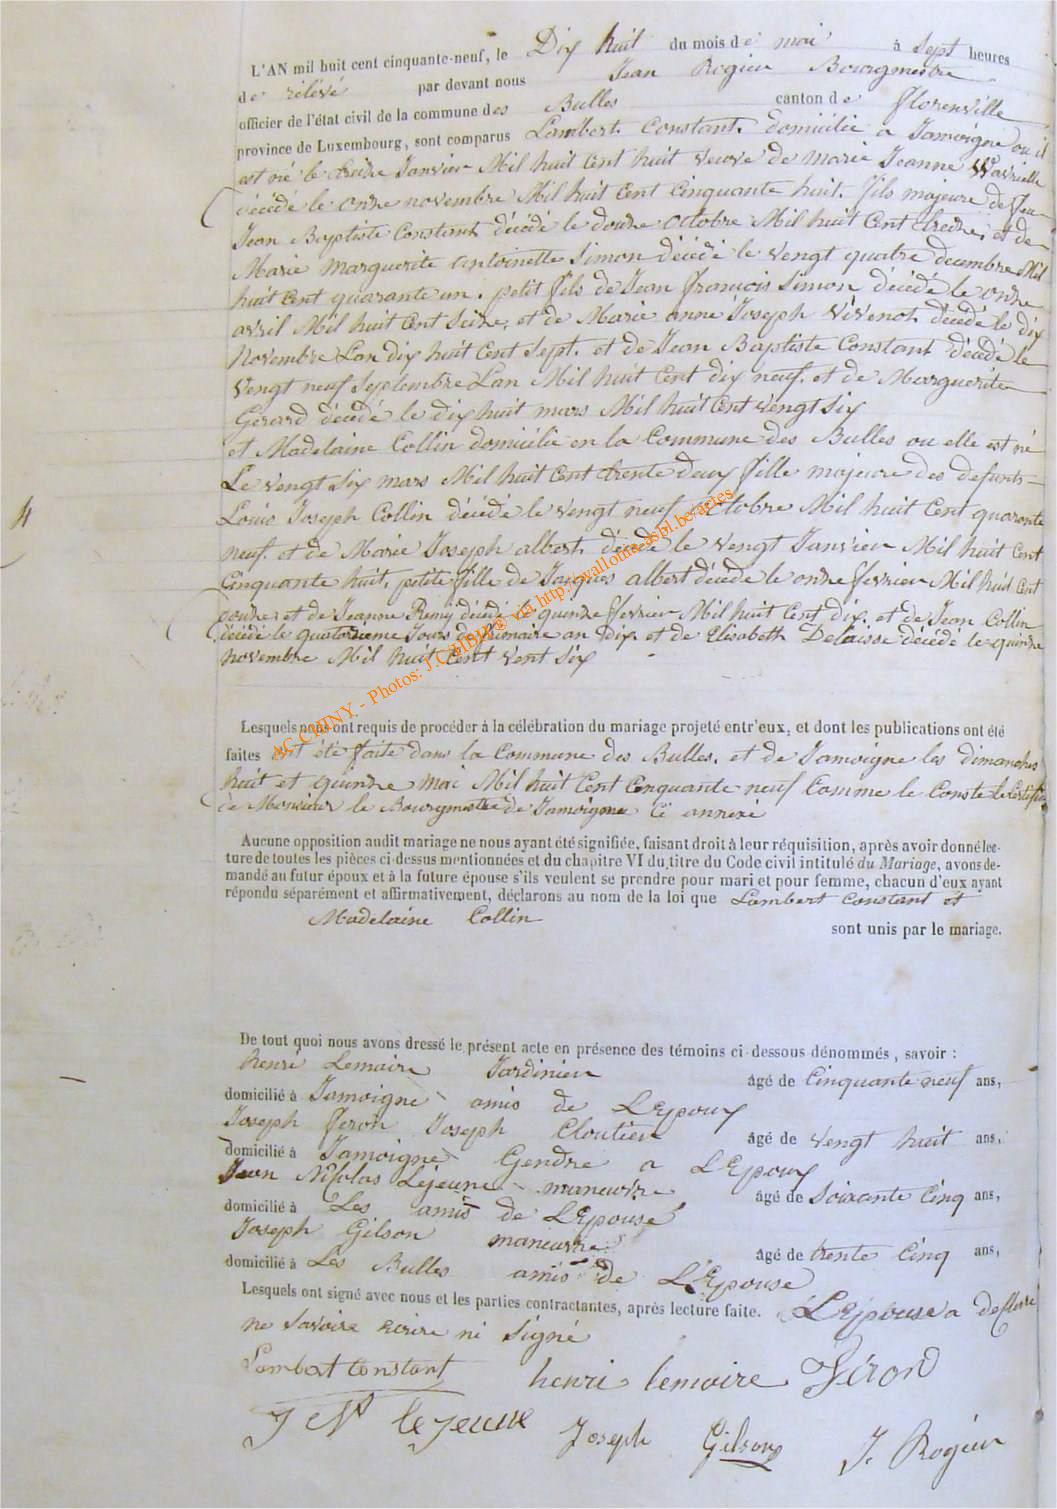 L'AN mil huit cent cinquante-neuf, le Dix huit du mois de mai à sept heures
de relévé par devant nous Jean Rogier Bourgmestre
officier de l'état civil de la commune des Bulles canton de florenville
province de Luxembourg, sont comparus Lambert Constant domicilié a Jamoigne ou il
est né le treize Janvier Mil huit Cent huit veuve de Marie Jeanne Wavrielle
décédé le onze novembre Mil huit Cent Cinquante huit, fils majeure de feu
Jean Baptiste Constant décédé le douze octobre Mil huit Cent treize, et de
Marie Marguerite antoinette Simon décédé le vengt quatre decembre Mil
huit Cent quarante un. petit fils de Jean françois Simon décédé le onze
avril Mil huit Cent Seize, et de Marie anne Joseph Vivenot décédé le dix
Novembre Lan dix huit Cent Sept. et de Jean Baptiste Constant décédé le
vengt neuf Septembre Lan Mil huit Cent dix neuf. et de Marguerite
Gerard décédé le dix huit mars Mil huit Cent vengt Six
et Madelaine Collin domicilié en la Commune des Bulles ou elle est né
Le vengt Six mars Mil huit Cent trente deux fille majeure des defunts
Louis Joseph Collin décédé le vengt neuf octobre Mil huit Cent quarante
neuf. et de Marie Joseph albert. décédé le vengt Janvier Mil huit Cent
Cinquante huit, petite fille de Jacques albert décédé le onze fevrier Mil huit Cent
douze, et de Jeanne Remy décédé le quinze fevrier Mil huit Cent dix, et de Jean Collin
décédé le quatorzieme Jours de frimaire an dix et de Elisabeth Delaisse décédé le quinze
novembre Mil huit Cent vent Six
AC CHINY - Photos: J. CHIBI® via http://wallonia-asbl.be/actes
4
Lesquels nous ont requis de procéder à la célébration du mariage projeté entr'eux, et dont les publications ont été
faites ont été faite dans la Commune des Bulles. et de Jamoigne les dimanches
huit et quinze mai Mil huit Cent Cenquante neuf Comme le Conste le Certificat
de Monsieur le Bourgmestre de Jamoigne Ci annexé
Aucune opposition audit mariage ne nous ayant été signifiée, faisant droit à leur réquisition, après avoir donné lec-
ture de toutes les pièces ci-dessus mentionnées et du chapitre VI du titre du Code civil intitulé du Mariage, avons de-
mandé au futur époux et à la future épouse s'ils veulent se prendre pour mari et pour femme, chacun d'eux ayant
répondu séparément et affirmativement, déclarons au nom de la loi que Lambert Constant et
Madelaine Collin
sont unis par le mariage.
De tout quoi nous avons dressé le présent acte en présence des témoins ci-dessous dénommés, savoir :
henri Lemaire Jardinier âgé de Cinquante neuf ans,
domicilié à Jamoigne amis de LEpoux
Joseph Feron Joseph Cloutier âgé de vengt huit ans,
domicilié à Jamoigne Gendre a LEpoux
Jean Nicolas Lejeune maneuvre âgé de Soixante Cinq ans,
domicilié à Les amis de LEpouse
Joseph Gilson maneuvre âgé de trente Cinq ans,
domicilié à Les Bulles amis de LEpouse
Lesquels ont signé avec nous et les parties contractantes, après lecture faite. LEpouse a declaré
ne Savoire ecrire ni Signé
Lambert Constant henri lemaire Féron
J N lejeune Joseph Gilson J. Rogier